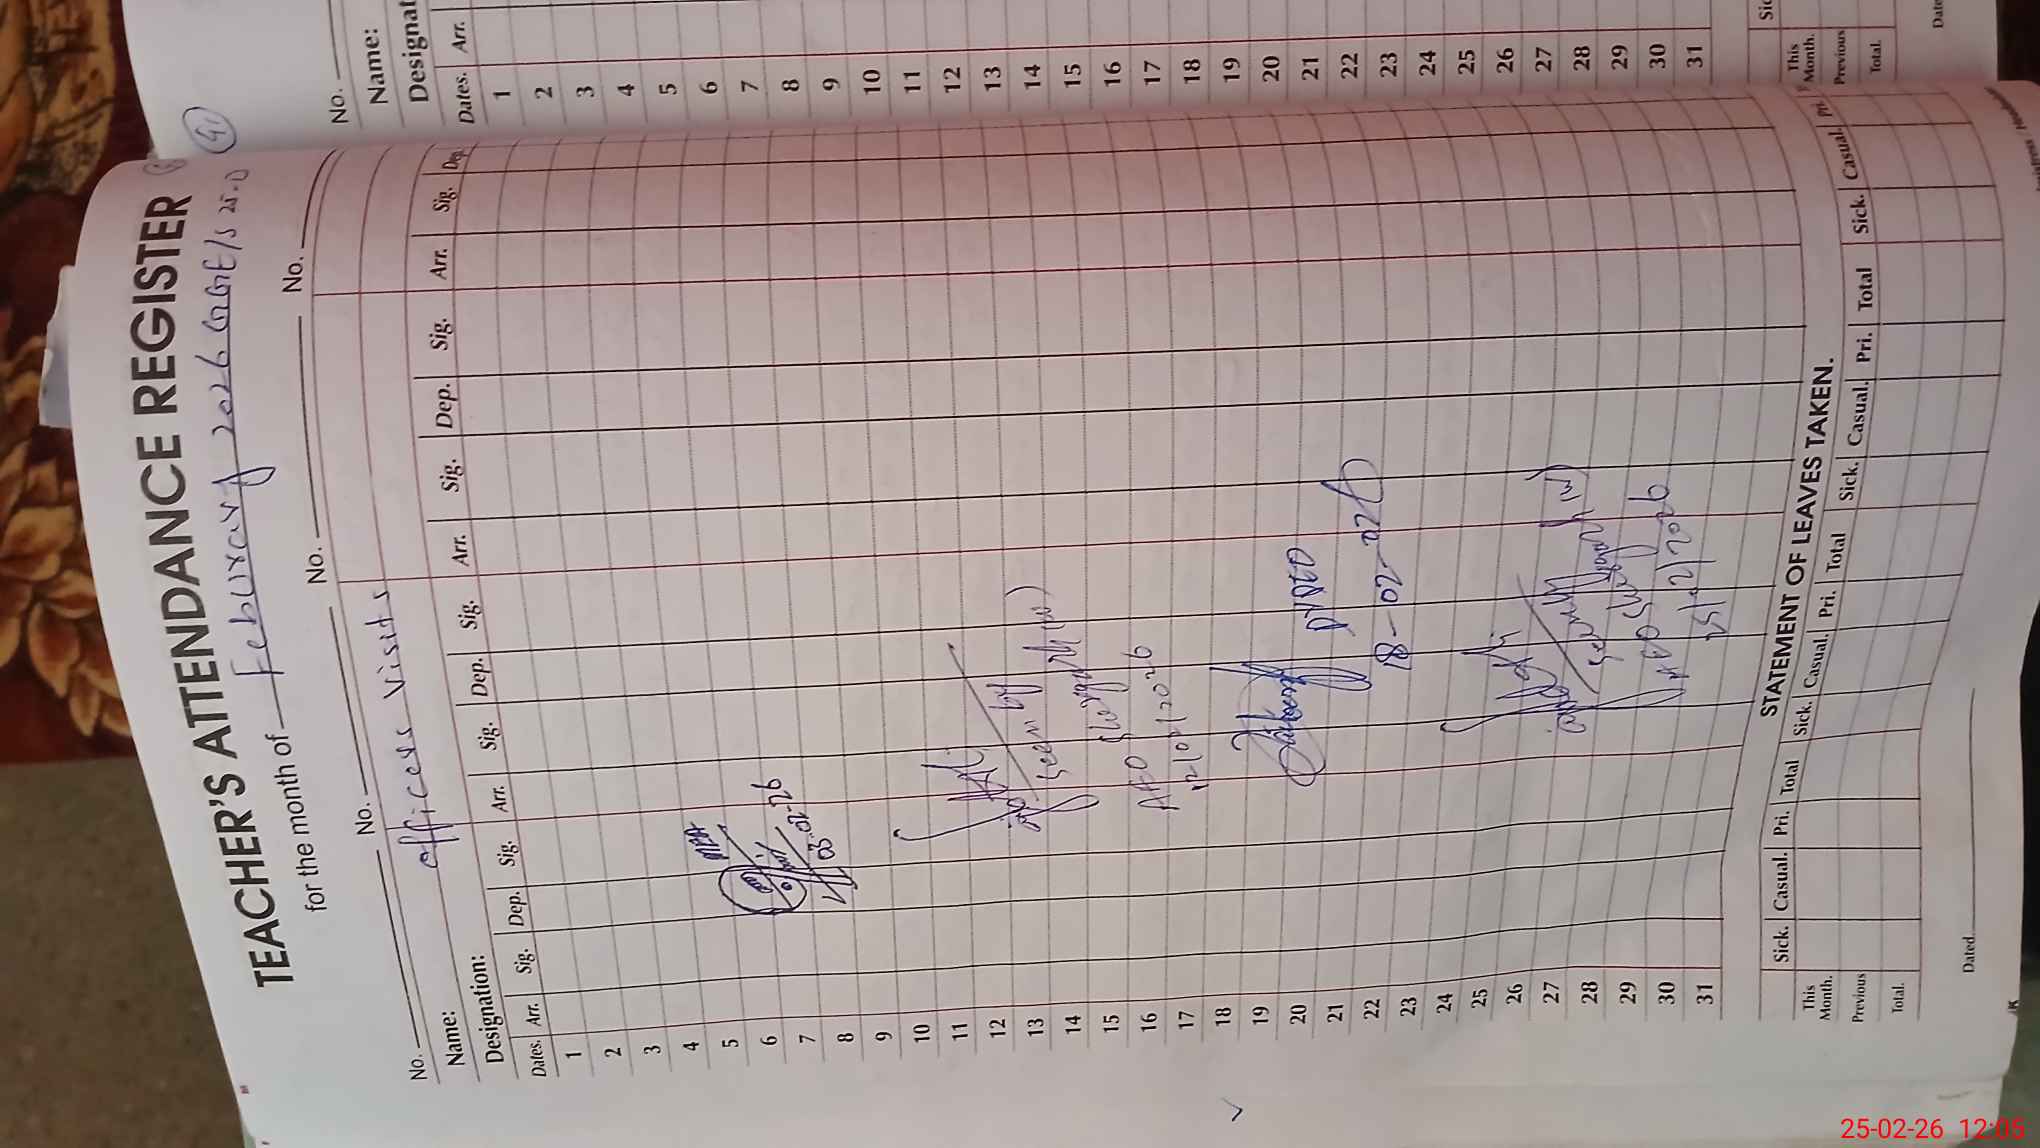 TEACHER'S ATTENDANCE REGISTER
for the month of Feburary 2026
No. No. No. No.
Name: officers visits
Designation:
Dates. Arr. Sig. Dep. Sig. Arr. Sig. Dep. Sig. Arr. Sig. Dep. Sig. Arr. Sig. Dep.
1
2
3
4
5
6
7
8 03-02-26
9
10
11
12
13
14 Seen by
15
16 AEO
17 12/02/2026
18
19
20
21
22
23 18-02-026
24
25
26
27
28 Seen
29
30 AEO
31 25/2/2026
STATEMENT OF LEAVES TAKEN.
Sick. Casual. Pri. Total Sick. Casual. Pri. Total Sick. Casual. Pri. Total Sick. Casual. Pri.
This Month.
Previous
Total.
Dated
No.
Name:
Designat
Dates. Arr.
1
2
3
4
5
6
7
8
9
10
11
12
13
14
15
16
17
18
19
20
21
22
23
24
25
26
27
28
29
30
31
Sic
This Month.
Previous
Total.
Date
25-02-26 12:05